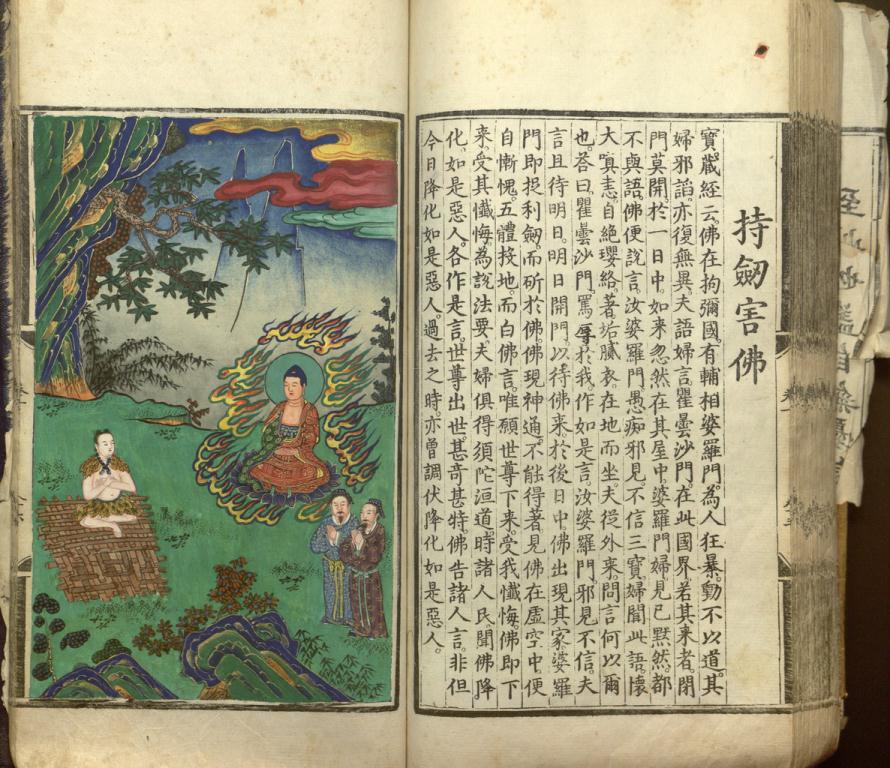 持劒害佛
寶藏經云。佛在拘彌國。有輔相婆羅門。為人狂暴。動不以道。其
婦邪諂。亦復無異。夫語婦言。瞿曇沙門。在此國界。若其來者。閉
門莫開。於一日中。如來忽然在其屋中。婆羅門婦。見已默然。都
不與語。佛便說言。汝婆羅門。愚痴邪見。不信三寶。婦聞此語。懷
大嗔恚。自絕瓔珞。著垢膩衣。在地而坐。夫從外來。問言何以爾
也。荅曰。瞿曇沙門。罵辱於我。作如是言。汝婆羅門。邪見不信。夫
言且待明日。明日開門。以待佛來。於後日中。佛出現其家。婆羅
門即捉利劒。而斫於佛。佛現神通。不能得著。見佛在虛空中。便
自慚愧。五體投地。而白佛言。唯願世尊下來。受我懺悔。佛即下
來。受其懺悔。為說法要。夫婦俱得須陀洹道。時諸人民。聞佛降
化。如是惡人。各作是言。世尊出世。甚奇甚特。佛告諸人言。非但
今日降化如是惡人。過去之時。亦曾調伏降化如是惡人。